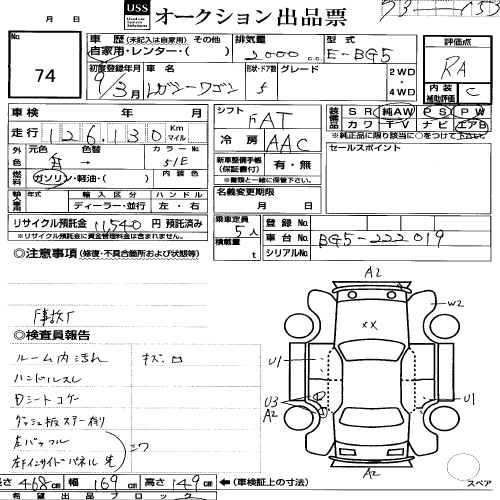 USS オークション出品票
月 日
No. 74
車歴 (未記入は自家用) その他
自家用・レンター・( )
排気量 2000 cc
型式 E-BG5
評価点 RA
初度登録年月 9/3月
車名 レガシーワゴン
形状・ドア数 5
グレード
2WD・4WD
内装補助評価 C
車検 年 月
シフト FAT
装備品 SR 純AW PS PW
カワ TV ナビ エアB
※純正品に限り該当に○をつけて下さい
走行 126,130 Km マイル
冷房 AAC
セールスポイント
外色 元色 色替 カラーNo.
青 → 51E
燃料 ガソリン・軽油・( ) 内装色
新車整備手帳(保証書付) 有・無
※書類と一緒に保管して下さい
輸入車用 年式 輸入区分 ハンドル
ディーラー・並行 左・右
名義変更期限 月 日
リサイクル預託金 11,540 円 預託済み
※リサイクル預託金に資金管理料金は含まれません。
乗車定員 5人
積載量 t
登録No.
車台No. BG5-222019
シリアルNo.
◎注意事項 (修復・不具合箇所および状態等)
A2
W2
××
U1
U3
A2
U1
A2
スペア
◎検査員報告
ルーム内汚れ キズ
ハンドルスレ
Dシートコゲ
長さ 468 cm 幅 169 cm 高さ 149 cm ←(車検証上の寸法)
希望出品ブロック